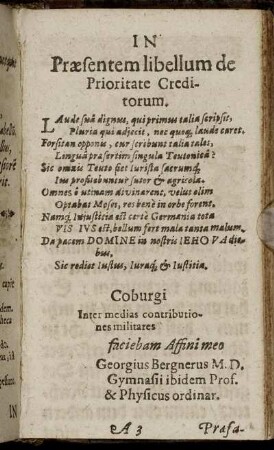 IN
Præsentem libellum de
Prioritate Credi-
torum.
LAude suâ dignus, qui primus talia scripsit,
Pluria qui adjecit, nec quoq; laude caret.
Forsitan opponis, cur scribunt talia tales,
Linguâ præsertim singula Teutonicâ?
Sic omnis Teuto fiet Iurista sacrumq;
Ius profitebuntur sutor & agricola.
Omnes ô utinam divinarent, velut olim
Optabat Moses, res benè in orbe forent.
Namq; Injustitia est certè Germania tota
VIS IVS est, bellum fert mala tanta malum.
Da pacem DOMINE in nostris IEHOVA die-
bus,
Sic rediet Iustus, Iuraq; & Iustitia.
Coburgi
Inter medias contributio-
nes militares
faciebam Affini meo
Georgius Bergnerus M. D.
Gymnasii ibidem Prof.
& Physicus ordinar.
A 3 Præfa-
IN